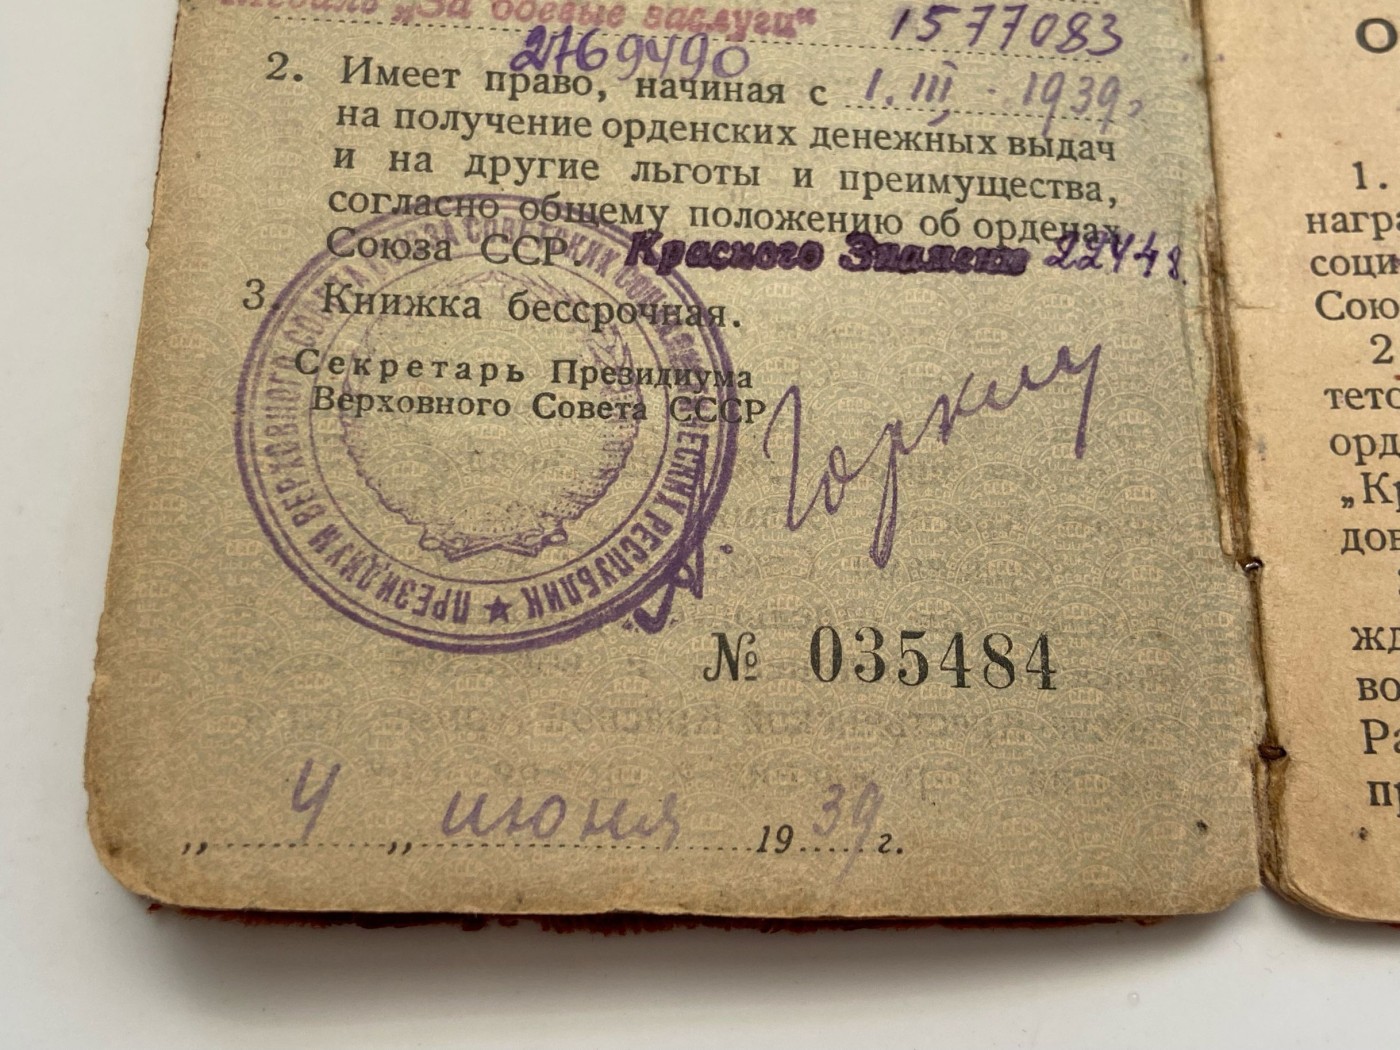 Медаль „За боевые заслуги“ 1577083
2769490
2. Имеет право, начиная с 1. III - 1939г
на получение орденских денежных выдач
и на другие льготы и преимущества,
согласно общему положению об орденах
Союза ССР. Красного Знамени 22448.
3. Книжка бессрочная.
Секретарь Президиума
Верховного Совета СССР
Горкин
ПРЕЗИДИУМ ВЕРХОВНОГО СОВЕТА СОЮЗА СОВЕТСКИХ СОЦИАЛИСТИЧЕСКИХ РЕСПУБЛИК
№ 035484
„ 4 „ июня 1939 г.
О
1.
награ
соци
Сою
2
тето
орд
„Кр
дов
жд
во
Ра
пр